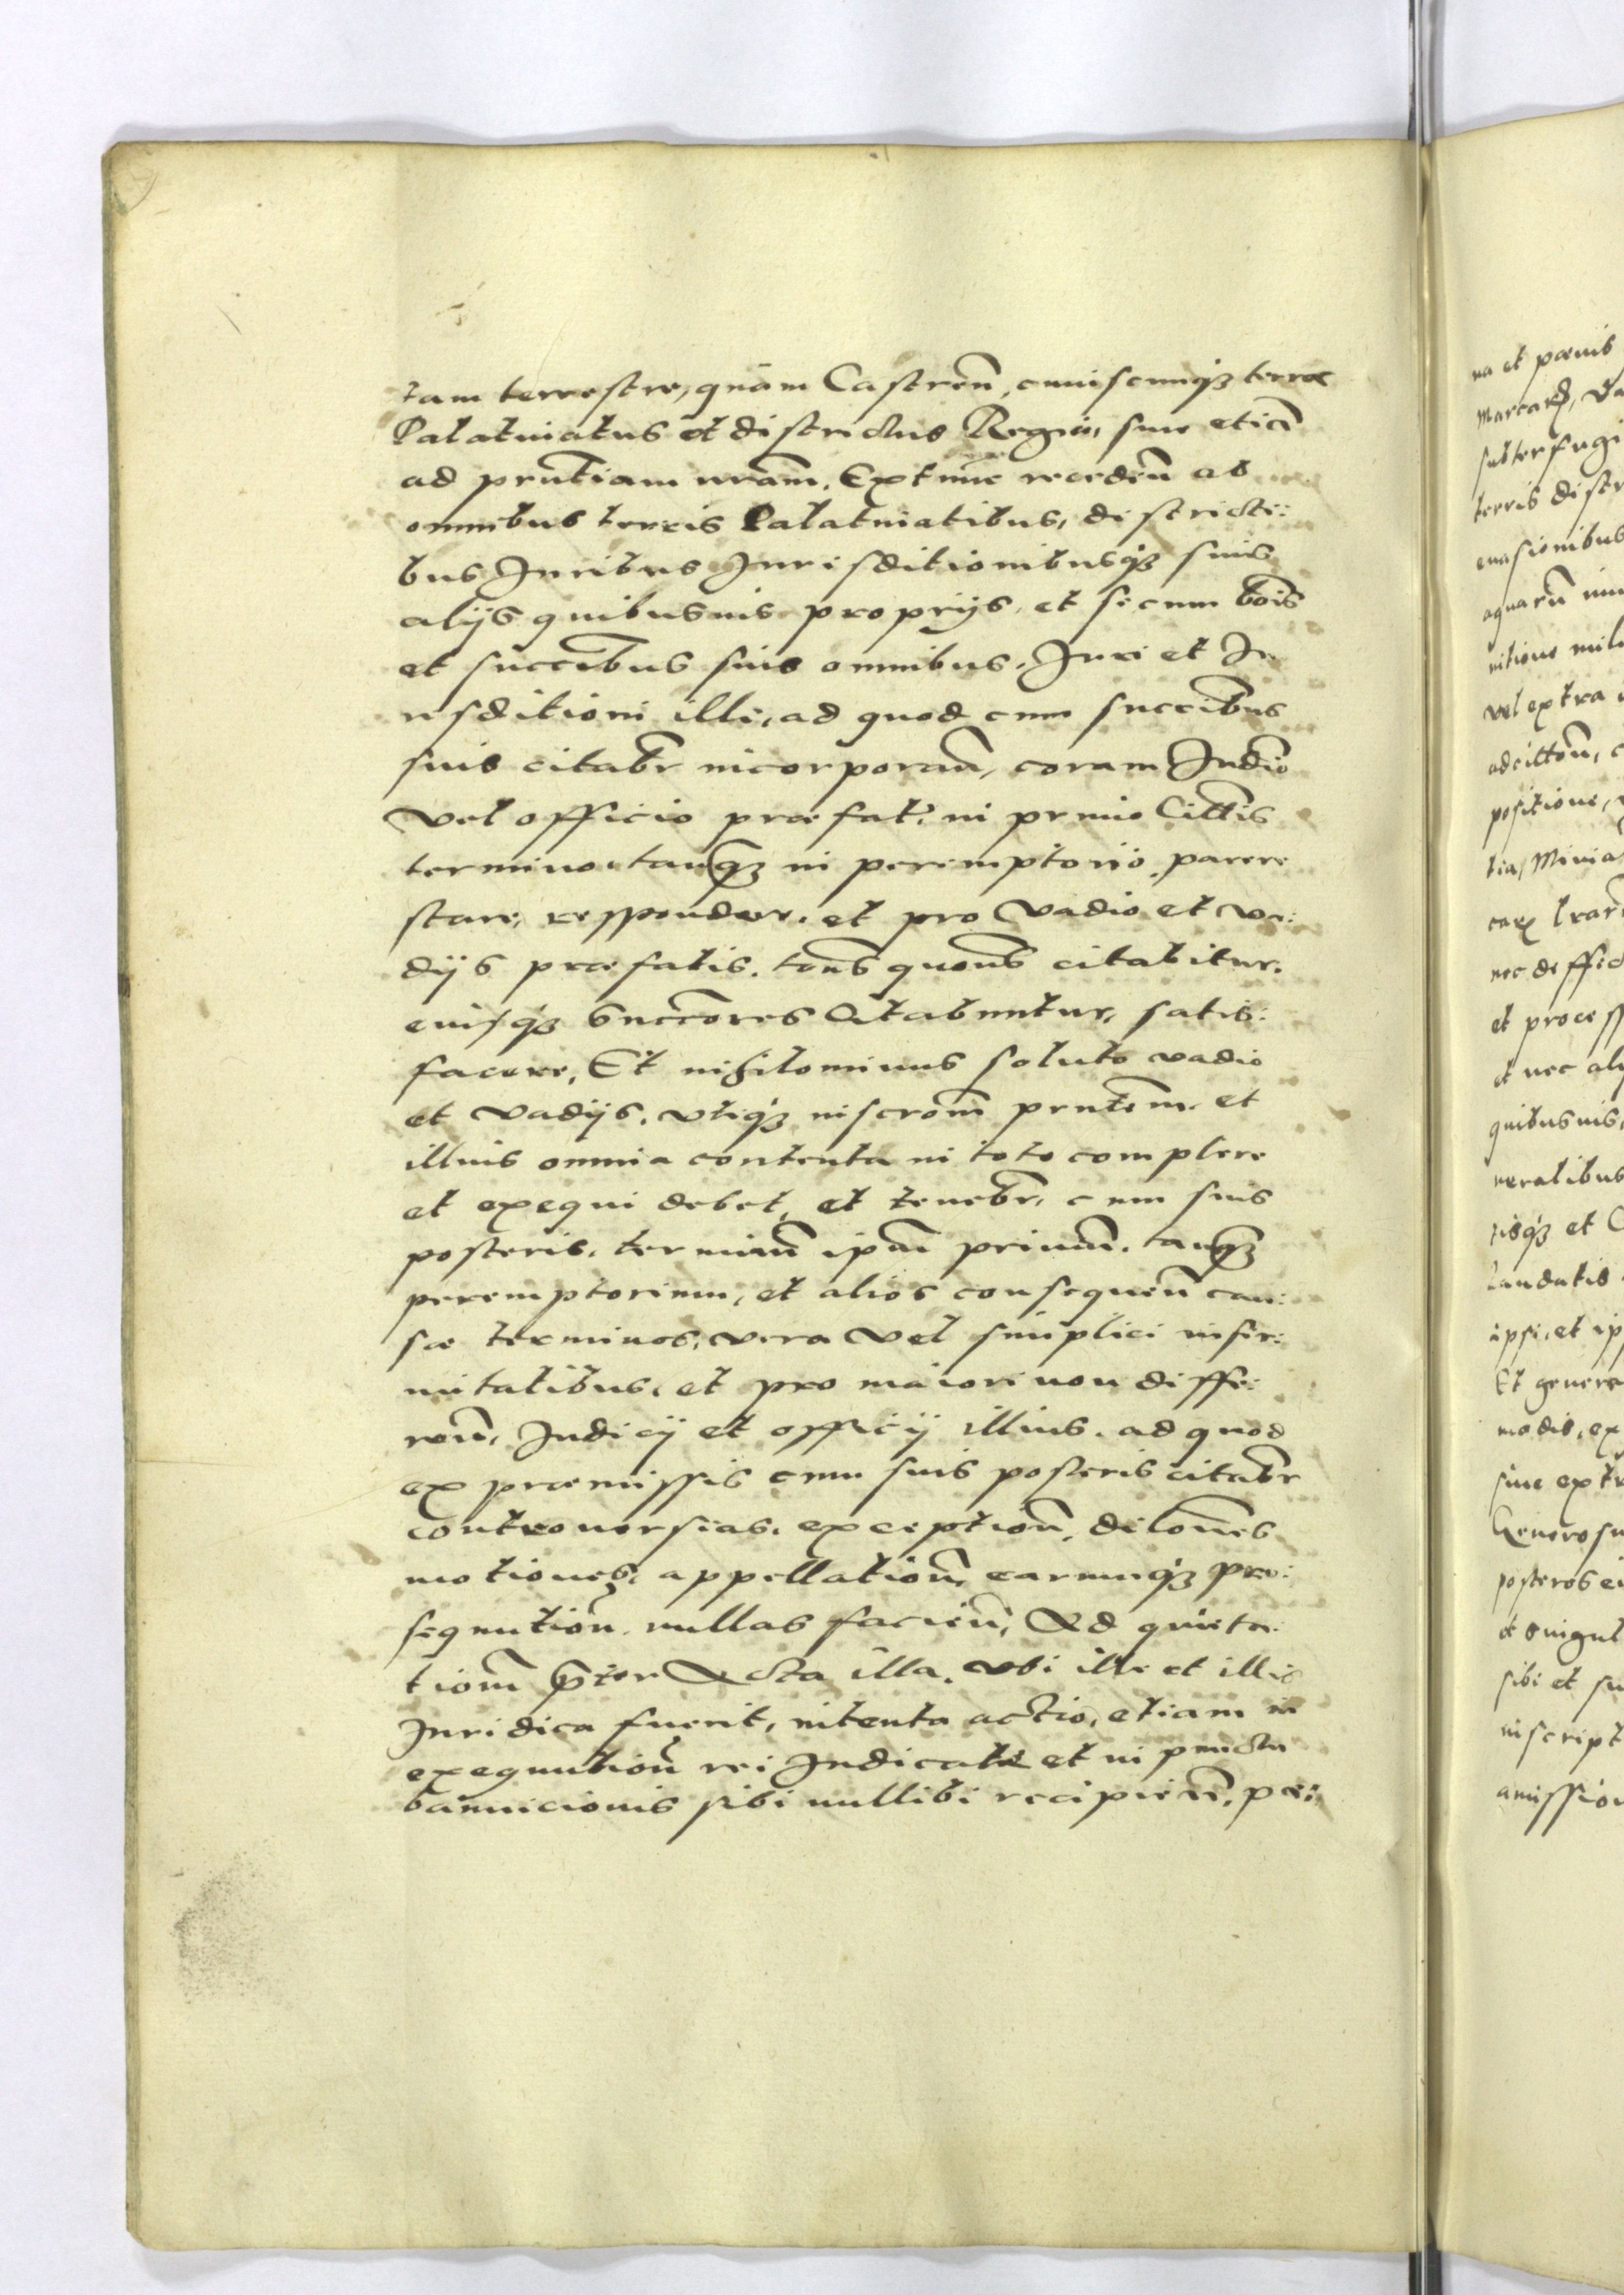 tam terrestre, quàm Castren̄, cuiuscunqȝ terræ
Palatinatus et districtus Regni, siue etiā
ad prn̄tiam nr̄am. Extunc recedēn ab
omnibus terris Palatinatibus, districti:
bus Iuribus Iurisditionibusqȝ suis
alijs quibusuis proprijs, et secum bonis
et succībus suis omnibus, Iuri et Iu
risditioni illi, ad quod cum succībus
suis citabr̄ incorporan̄, coram Iudīo
vel officio præfat: in primo Cittīs
termino, tanqȝ in peremptorio, parere
stare, respondere, et pro vadio et va:
dijs præfatis, totīs quotīs citabitur,
eiusqȝ Succōres Citabuntur, satis:
facere, Et nihilominus soluto vadio
et vadijs, vtiqȝ inscrōm prn̄tem, et
illius omnia contenta in toto complere
et exequi debet, et tenebr̄, cum suis
posteris, terminū ipm̄ primū, tanqȝ
peremptorium, et alios consequen̄ cau:
sæ terminos, vera vel simplici infir:
mitatibus, et pro maiori non diffe:
ren̄, Iudicij et officij illius, ad quod
ex præmissis cum suis posteris citabr̄
controuersias, exception̄, dilōnes
motiones, appellation̄, earumqȝ pro:
sequution̄ nullas facien̄, Ad quieta:
tiōm prēter Acta illa, vbi illi et illis
Iuridica fuerit, intenta actio, etiam in
exequution̄ rei Iudicatæ et in puncto
bannicionis sibi nullibi recipien̄, pœ:
na et pœnis
marcarū, va
subterfugi
terris distr
euasionibus
aquarū inu
nitione mili
vel extra
adcittōn̄, c
positione,
tia, Minia
car
nec deffec
et process
et nec ali
quibusuis,
neralibus
risqȝ et C
laudatis
ipsi, et ip
Et genera
modis, ex
siue extr
Generosu
posteros ei
et singul
sibi et su
inscript
amission